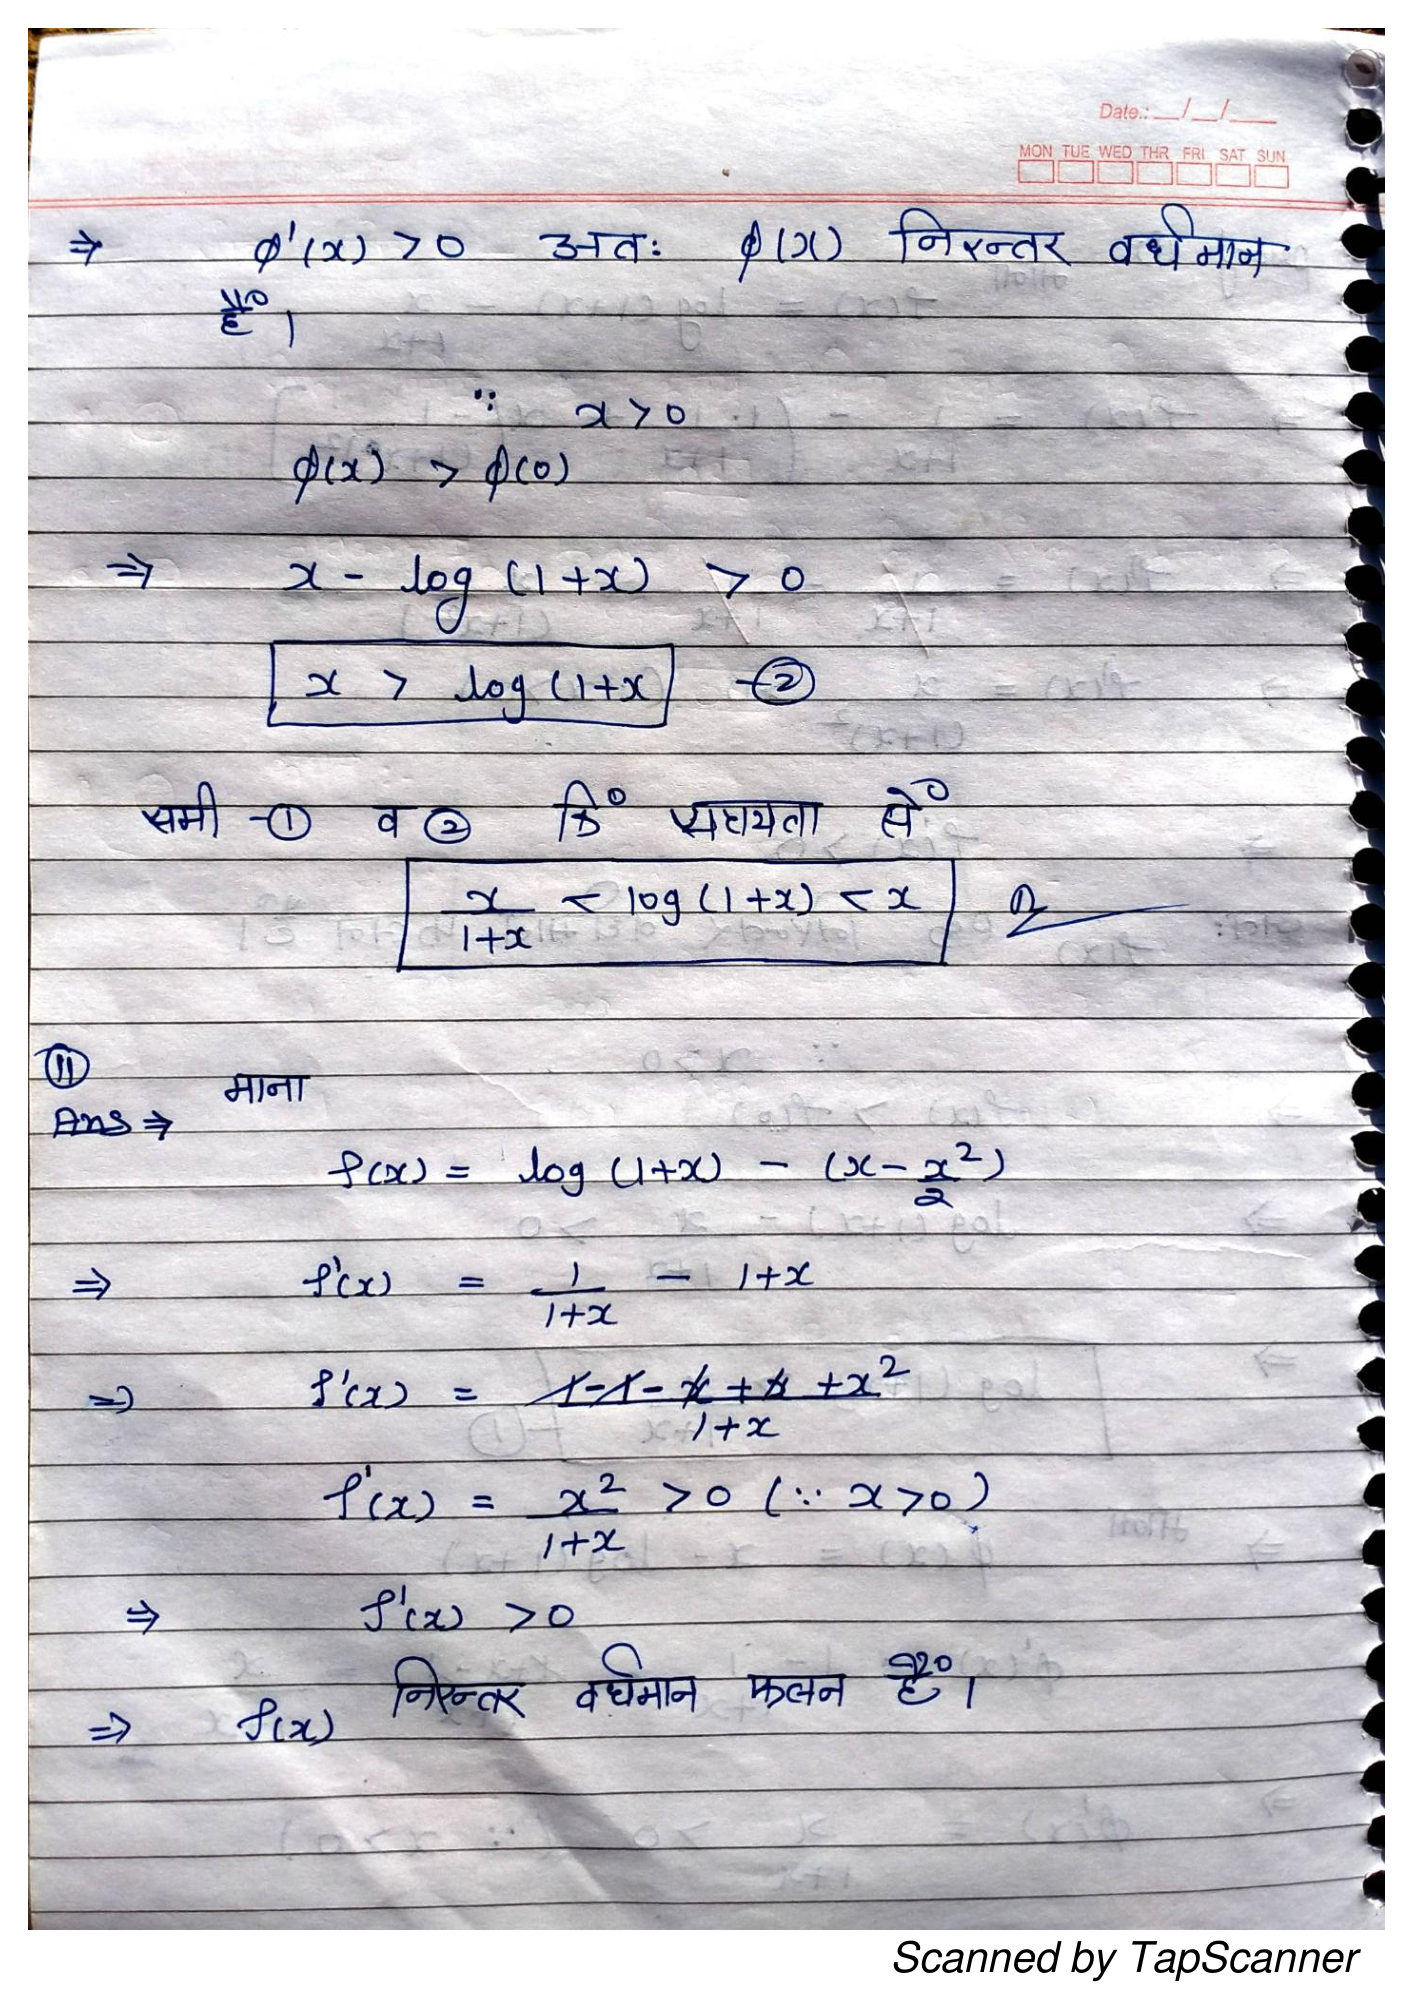 Date.: __/__/__
MON TUE WED THR FRI SAT SUN
⇒ φ'(x) > 0 अतः φ(x) निरन्तर वर्धमान
है।
∵ x > 0
φ(x) > φ(0)
⇒ x - log (1+x) > 0
x > log (1+x -②
समी -① व ② कि सहायता से
x/(1+x) < log (1+x) < x
⑪ माना
Ans ⇒
f(x) = log (1+x) - (x - x²/2)
⇒ f'(x) = 1/(1+x) - 1+x
⇒ f'(x) = (1-1-x+x+x²)/(1+x)
f'(x) = x²/(1+x) > 0 (∵ x>0)
⇒ f'(x) > 0
⇒ f(x) निरन्तर वर्धमान फलन है।
Scanned by TapScanner